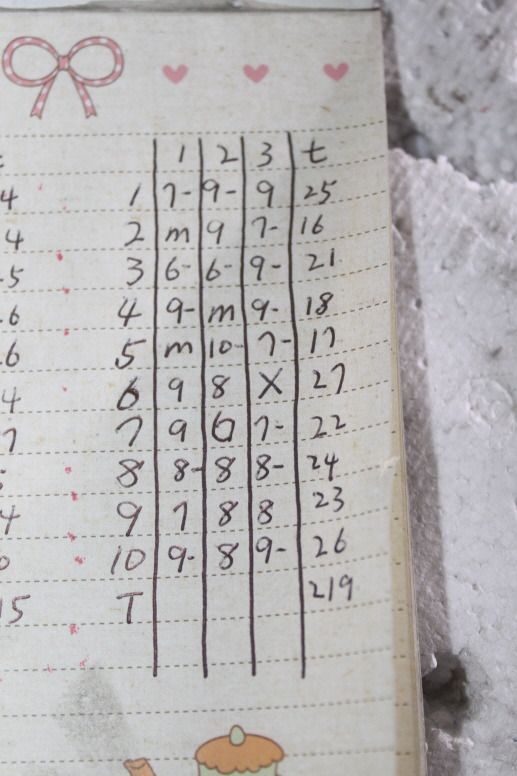 1 2 3 t
4 1 7- 9- 9 25
4 2 m 9 7- 16
-5 3 6- 6- 9- 21
6 4 9- m 9- 18
6 5 m 10- 7- 17
4 6 9 8 X 27
7 7 9 6 7- 22
8 8- 8 8- 24
4 9 7 8 8 23
0 10 9- 8 9- 26
15 T 219